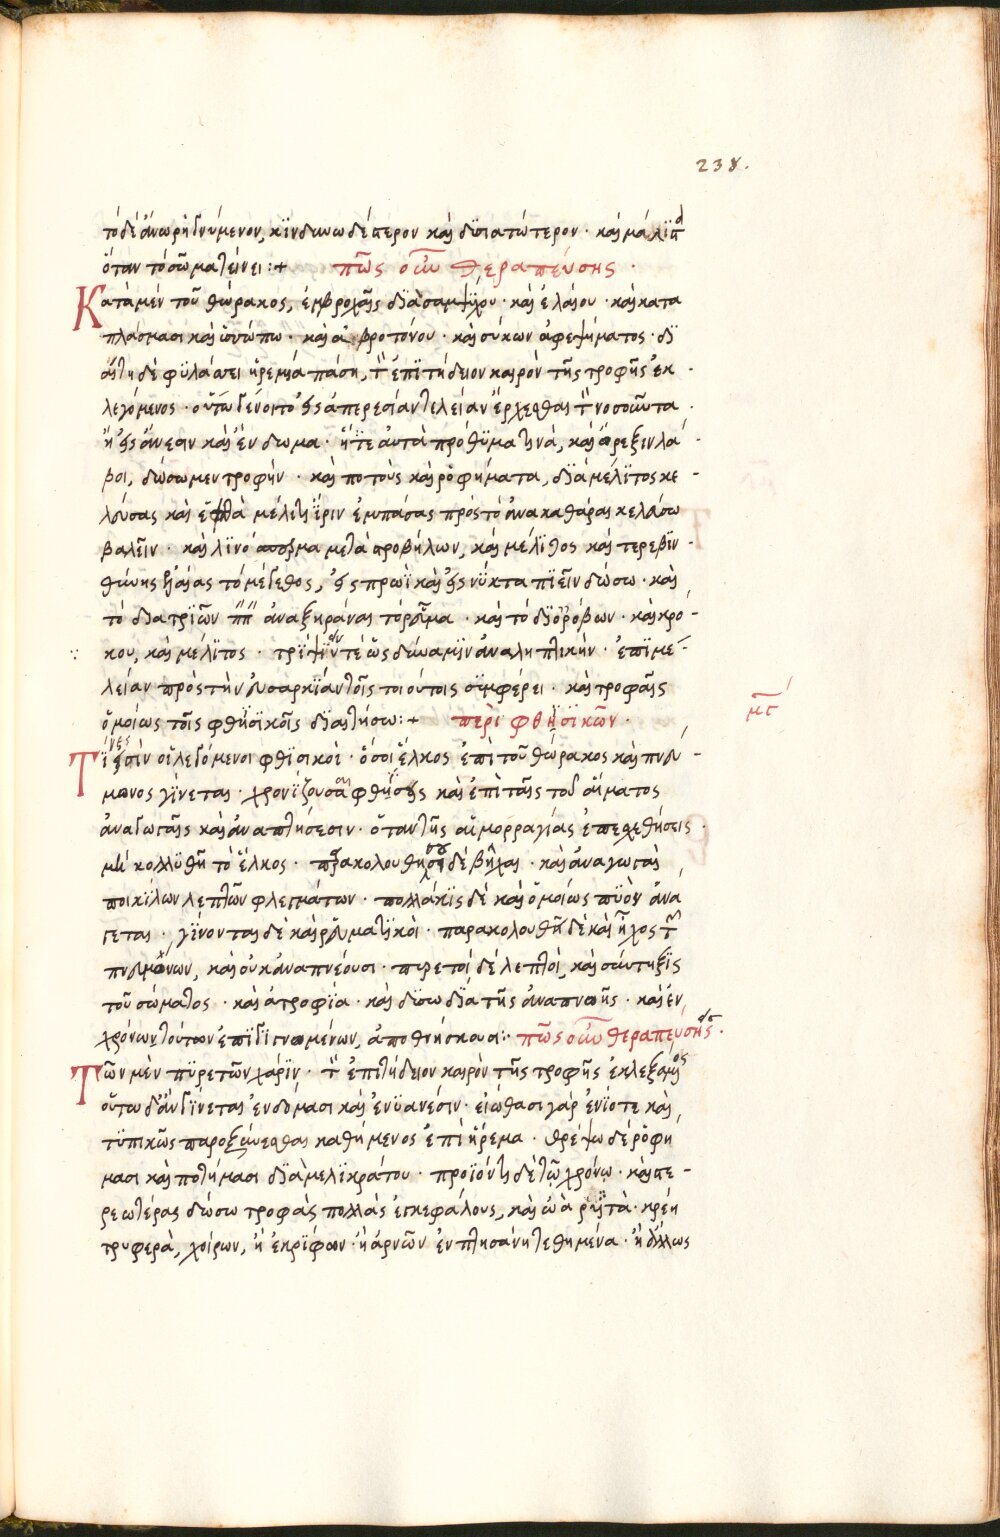 238.
τὸ δὲ ἄνω ῥηγνύμενον, κϊνδυνωδέστερον καὶ δυσιατώτερον · καὶ μάλϊστα
ὅταν τὸ σῶμα τείνει :+ πῶς οὖν θεραπεύσης ·
Κατὰ μὲν τοῦ θώρακος, ἐμβροχαῖς δϊὰ σαμψύχου · καὶ ἐλαίου · καὶ κατα
πλάσμασι καὶ ὑσσώπω · καὶ ἀβροτόνου · καὶ σύκων ἀφεψήματος · δϊ
αίτη δὲ φυλάσσει ἠρεμία πάση, τὸν ἐπϊτήδειον καιρὸν τῆς τροφῆς ἐκ -
λεγόμενος · οὕτω γένοιτο εἰς ἀπερεσίαν τελείαν ἔρχεσθαι τὸν νοσοῦντα ·
ἢ εἰς ἄνεσιν καὶ ἔνδωμα · ἤτε αὐτὰ πρόθυμα τινὰ, καὶ ὄρεξιν λά -
βοι, δώσωμεν τροφήν · καὶ ποτοὺς καὶ ῥοφήματα, δϊὰ μέλϊτος κε -
λεύσας καὶ ἑφθὰ μέλιτι ἴριν ἐμπάσας πρὸς τὸ ἀνακαθάραι κελεύσω
βαλεῖν · καὶ λϊνόσπερμα μετὰ στροβήλων, καὶ μέλϊτος καὶ τερεβϊν -
θίνης ἐλαίας τὸ μέγεθος, εἰς πρωῒ καὶ εἰς νύκτα πϊεῖν δώσω · καὶ
τὸ διὰ τρϊῶν πεπ. ἀναξηράναι τὸ ῥεῦμα · καὶ τὸ δϊ' ὀρόβων · καὶ κρό -
κου, καὶ μέλϊτος · τρίψϊν τὲ ὡς δύναμϊν ἀναληπτικήν · ἐπϊμέ -
λείαν πρὸς τὴν εὐσαρκϊάν τοῖς τοιούτοις συμφέρει · καὶ τροφαῖς
ὁμοίως τοῖς φθϊσϊκοῖς δϊαιτήσω :+ περὶ φθϊσϊκῶν ·
μϛ
Τίνες εἰσὶν οἱ λεγόμενοι φθϊσικοὶ · ὅσοι ἕλκος ἐπὶ τοῦ θώρακος καὶ πνεύ -
μονος γίνεται · χρονίζουσα φθίσις καὶ ἐπὶ ταῖς τοῦ αἵματος
ἀναγωγαῖς καὶ ἀναπτήσεσιν · ὅταν τῆς αἱμορραγίας ἐπεχεθήσεις ·
μὴ κολλυθῆ τὸ ἕλκος · παρακολουθήσει δὲ βῆχαι · καὶ ἀναγωγαὶ
ποικϊλων λεπτῶν φλεγμάτων · πολλάκϊς δὲ καὶ ὁμοίως πϋὸν ἀνά
γεται · γίνονται δὲ καὶ ῥευματϊκοὶ · παρακολουθεῖ δὲ καὶ ἦχος τῶν
πνευμόνων, καὶ οὐκ ἀναπνέουσι · πυρετοὶ δὲ λεπτοὶ, καὶ σύντηξϊς
τοῦ σώματος · καὶ ἀτροφία · καὶ δϋσωδία τῆς ἀναπνοῆς · καὶ ἐν
χρόνων τούτων ἐπϊγϊγνομένων, ἀποθνήσκουσι : πῶς οὖν θεραπεύσης ·
Τῶν μὲν πϋρετῶν χάρϊν · τὸν ἐπιτήδειον καιρὸν τῆς τροφῆς ἐκλεξάμενος
οὕτω δ' ἂν γίνεται ἐνδόμασι καὶ ἐνϋανέσιν · εἰώθασι γὰρ ἐνίοτε καὶ
τϋπικῶς παροξύνεσθαι καθήμενος ἐπὶ ἠρέμα · θρέψω δὲ ῥοφή
μασι καὶ ποτήμασι δϊὰ μελϊκράτου · προϊόντι δὲ τῷ χρόνω · καὶ στε -
ρεωτέρας δώσω τροφὰς πολλὰς ἐγκεφάλους, καὶ ὠὰ ῥυτὰ · κρέη
τρυφερὰ, χοίρων, ἢ ἐκρϊφων · ἢ ἀρνῶν ἐν πτησάνη τεθημένα · ἢ ἄλλως